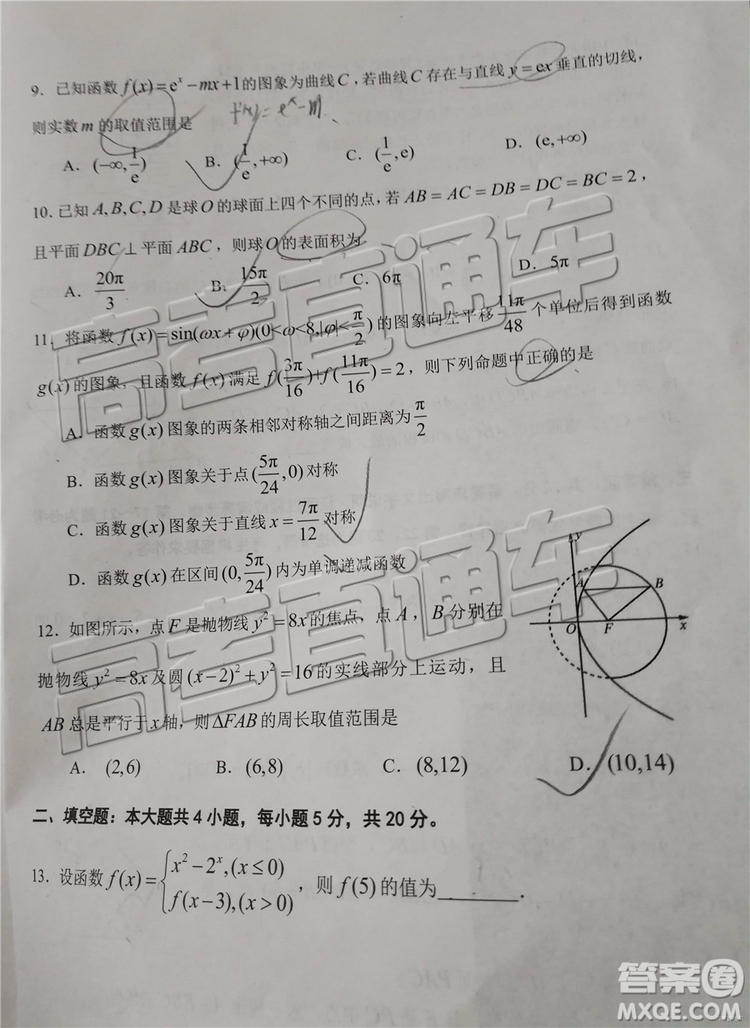 9. 已知函数 f(x)=eˣ−mx+1的图象为曲线C,若曲线C存在与直线y=ex垂直的切线,
f'(x)=eˣ-m.
则实数m的取值范围是
A. (−∞,1/e) B. (1/e,+∞) C. (1/e,e) D. (e,+∞)
10. 已知A,B,C,D是球O的球面上四个不同的点,若AB=AC=DB=DC=BC=2,
且平面DBC⊥平面ABC,则球O的表面积为
A. 20π/3 B. 15π/2 C. 6π D. 5π
11. 将函数f(x)=sin(ωx+φ)(0<ω<8,|φ|<π/2)的图象向左平移11π/48个单位后得到函数
g(x)的图象,且函数f(x)满足f(3π/16)+f(11π/16)=2,则下列命题中正确的是
A. 函数g(x)图象的两条相邻对称轴之间距离为π/2
B. 函数g(x)图象关于点(5π/24,0)对称
C. 函数g(x)图象关于直线x=7π/12对称
D. 函数g(x)在区间(0,5π/24)内为单调递减函数
12. 如图所示,点F是抛物线y²=8x的焦点,点A,B分别在
抛物线y²=8x及圆(x−2)²+y²=16的实线部分上运动,且
AB总是平行于x轴,则ΔFAB的周长取值范围是
y
A
B
O
F
x
A. (2,6) B. (6,8) C. (8,12) D. (10,14)
二、填空题:本大题共4小题,每小题5分,共20分。
13. 设函数f(x)={x²−2ˣ,(x≤0)
f(x−3),(x>0)
,则f(5)的值为________.
高考直通车
高考直通车
答案圈
MXQE.COM